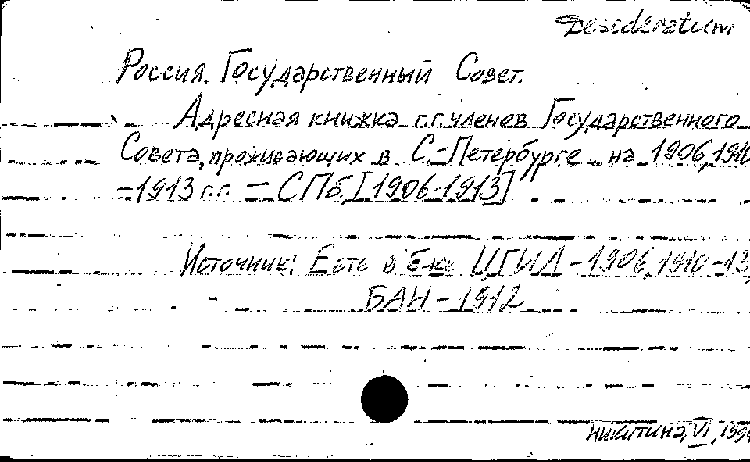 Desideratum
Россия. Государственный Совет.
Адресная книжка г.г. членов Государственного
Совета, проживающих в С-Петербурге на 1906, 1910
-1913 г.г. — СПб, [1906-1913]
Источник: Есть в б-ке ЦГИА - 1906, 1910-13,
БАН - 1912
Никитина, VI, 199